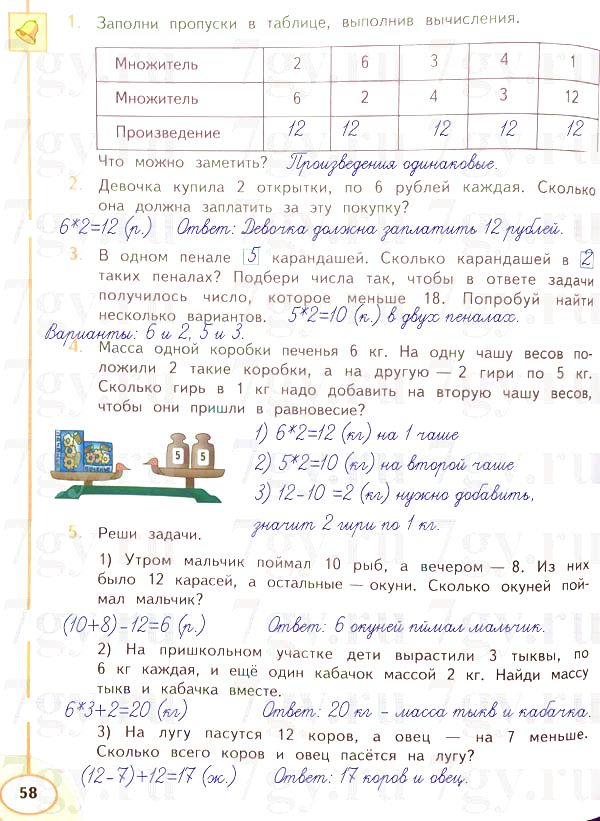 1. Заполни пропуски в таблице, выполнив вычисления.
Множитель 2 6 3 4 1
Множитель 6 2 4 3 12
Произведение 12 12 12 12 12
Что можно заметить? Произведения одинаковые.
2. Девочка купила 2 открытки, по 6 рублей каждая. Сколько
она должна заплатить за эту покупку?
6*2=12 (р.) Ответ: Девочка должна заплатить 12 рублей.
3. В одном пенале 5 карандашей. Сколько карандашей в 2
таких пеналах? Подбери числа так, чтобы в ответе задачи
получилось число, которое меньше 18. Попробуй найти
несколько вариантов. 5*2=10 (к.) в двух пеналах.
Варианты: 6 и 2, 5 и 3.
4. Масса одной коробки печенья 6 кг. На одну чашу весов по-
ложили 2 такие коробки, а на другую — 2 гири по 5 кг.
Сколько гирь в 1 кг надо добавить на вторую чашу весов,
чтобы они пришли в равновесие?
1) 6*2=12 (кг) на 1 чаше
5 5
2) 5*2=10 (кг) на второй чаше
3) 12-10 =2 (кг) нужно добавить,
значит 2 гири по 1 кг.
5. Реши задачи.
1) Утром мальчик поймал 10 рыб, а вечером — 8. Из них
было 12 карасей, а остальные — окуни. Сколько окуней пой-
мал мальчик?
(10+8)-12=6 (р.) Ответ: 6 окуней пймал мальчик.
2) На пришкольном участке дети вырастили 3 тыквы, по
6 кг каждая, и ещё один кабачок массой 2 кг. Найди массу
тыкв и кабачка вместе.
6*3+2=20 (кг) Ответ: 20 кг - масса тыкв и кабачка.
3) На лугу пасутся 12 коров, а овец — на 7 меньше.
Сколько всего коров и овец пасётся на лугу?
(12-7)+12=17 (ж.) Ответ: 17 коров и овец.
58
7gy.ru